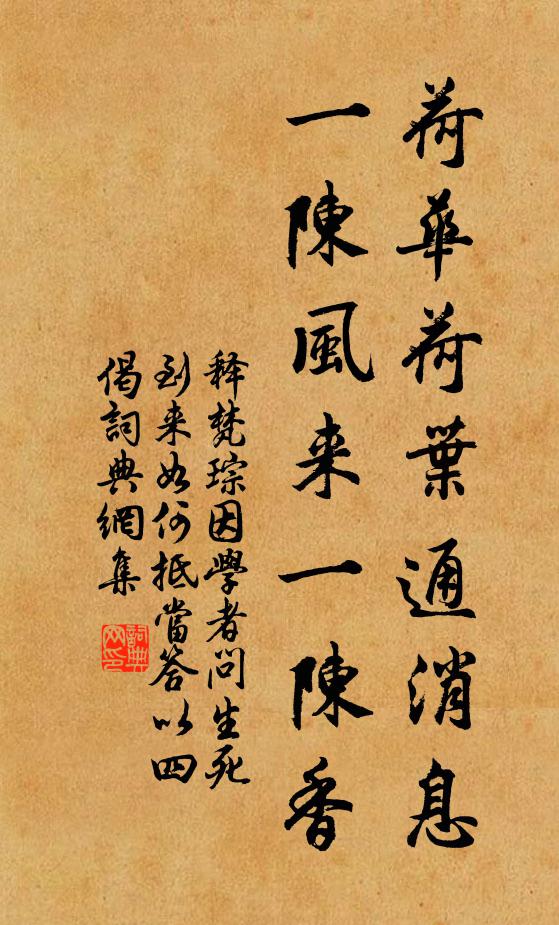 荷華荷葉通消息
一陳風来一陳香
释梵琮因學者問生死
到来如何抵當答以四
偈詞典網集
詞典网印